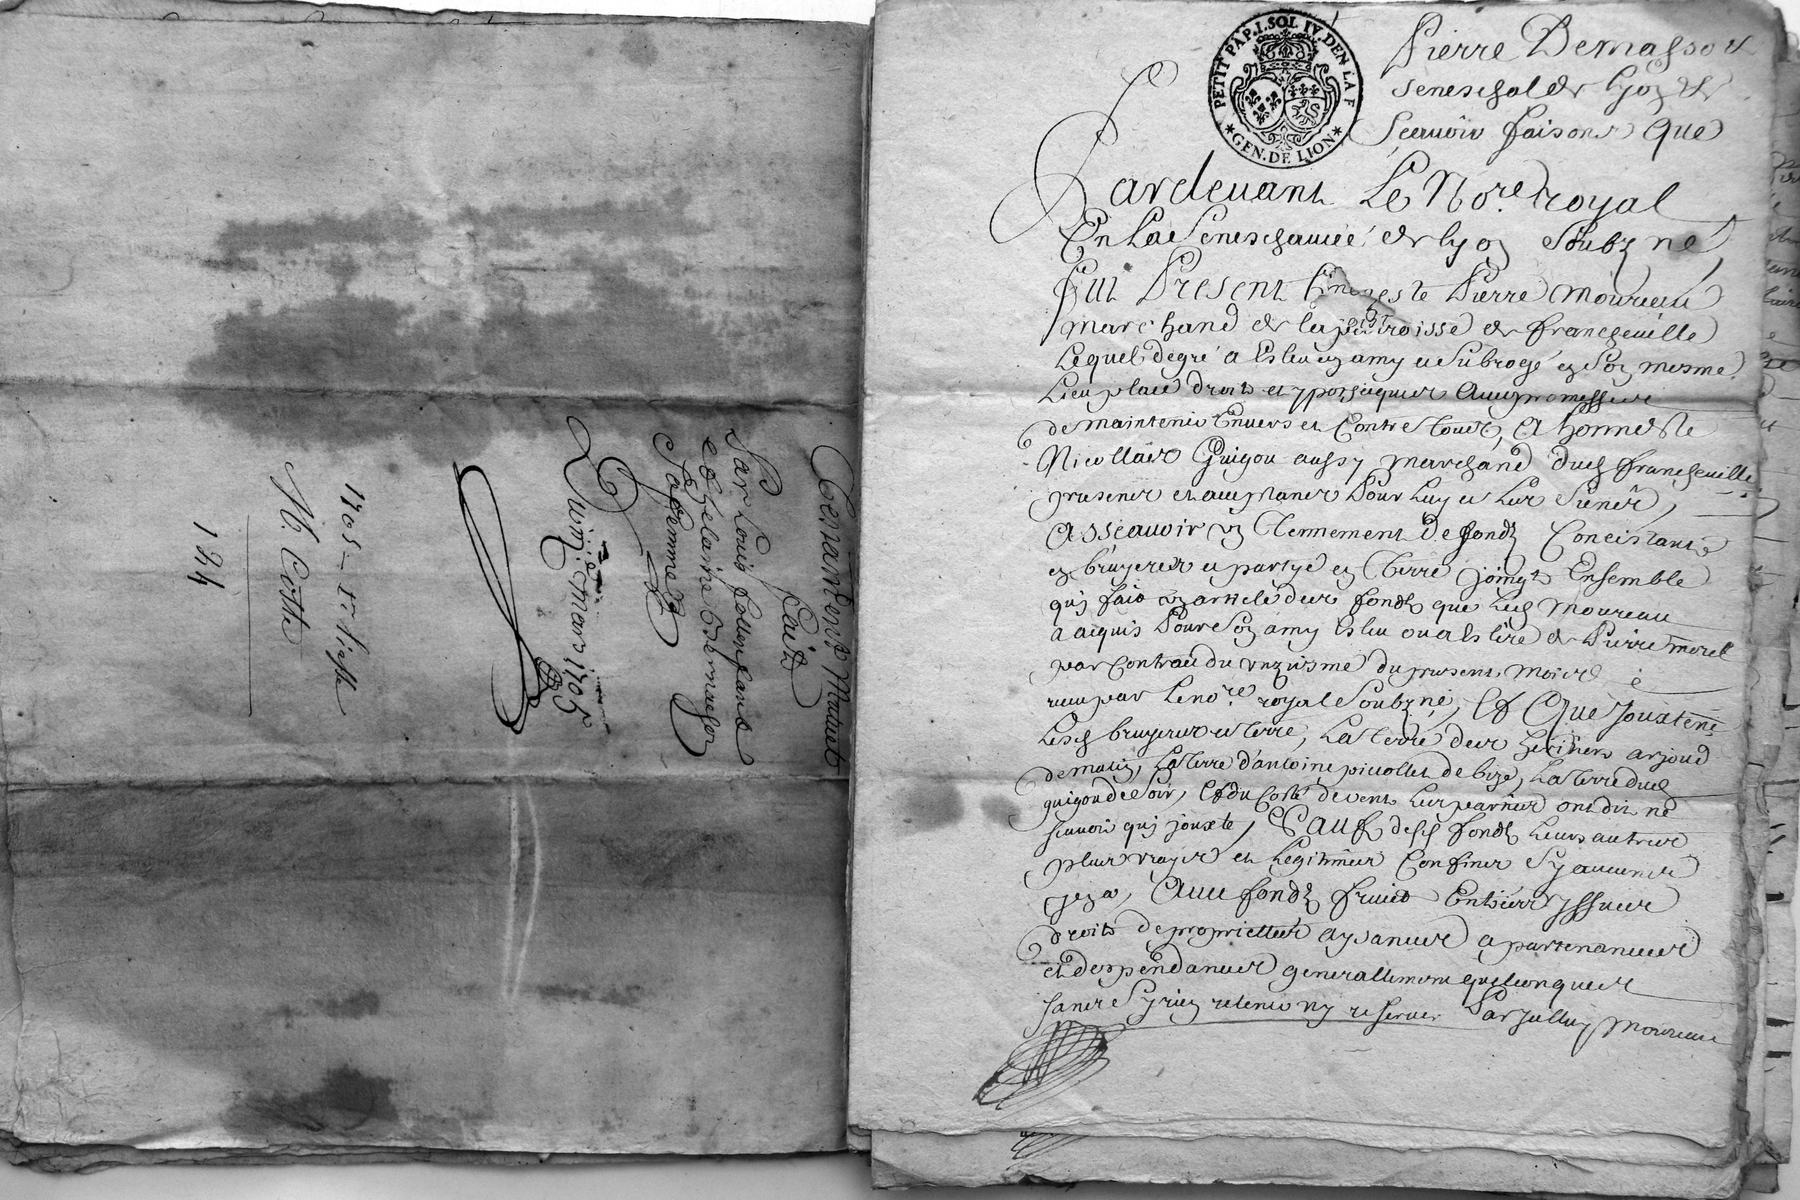 Testament Mutuel
Fait
Par Louis
et Helaine Demasson
Sa femme
Du in.e mars 1705
1705
N. Coste
124
PETIT PAP. I. SOL IV. DEN LA F
GEN. DE LION
Pierre Demasso
seneschal de lyon
Scavoir faisons que
Pardevant Le No.re royal
En La Seneschaucée de lyon Soubz.né
fut Present honneste Pierre Moureau
marchand de la parroisse de francheville
Lequel de gré a Esleu en amy et Subrogé en Son mesme
Lieu place droits et yppothéques Avec promesse
de maintenir Envers et Contre toues, A honneste
Nicollas Guigou aussy marchand dud. francheville
present et acceptant Pour Luy et Les Siens,
Asscavoir un Tennement de fondz Concistant
en bruyeres et partye en Terre joingt Ensemble
quj fait un article des fondz que Led. Moureau
a acquis Pour Son amy Esleu ou a Eslire de Pierre morel
par Contract du unziesme du present Mois
receu par Le no.re royal Soubz.né, Et Que Jouxte
Lesd. bruyeres et terre, La terre des heritiers arjoud
de matin, La terre d'antoine pivollet de bize, La terre dud.
guigou de Soir, Et du Costé de vent Les parties ont dit ne
scavoir quj jouxte, Sauf desd. fondz Leurs autres
plus vrayes et Legitimes Confines Sy aucunes
en a, Avec fondz fruits Entrées yssues
droits de proprietté aysances apartenances
et despendances generallement quelconques
sans Sy rien retenir ny reserver Par Icelluy Moureau